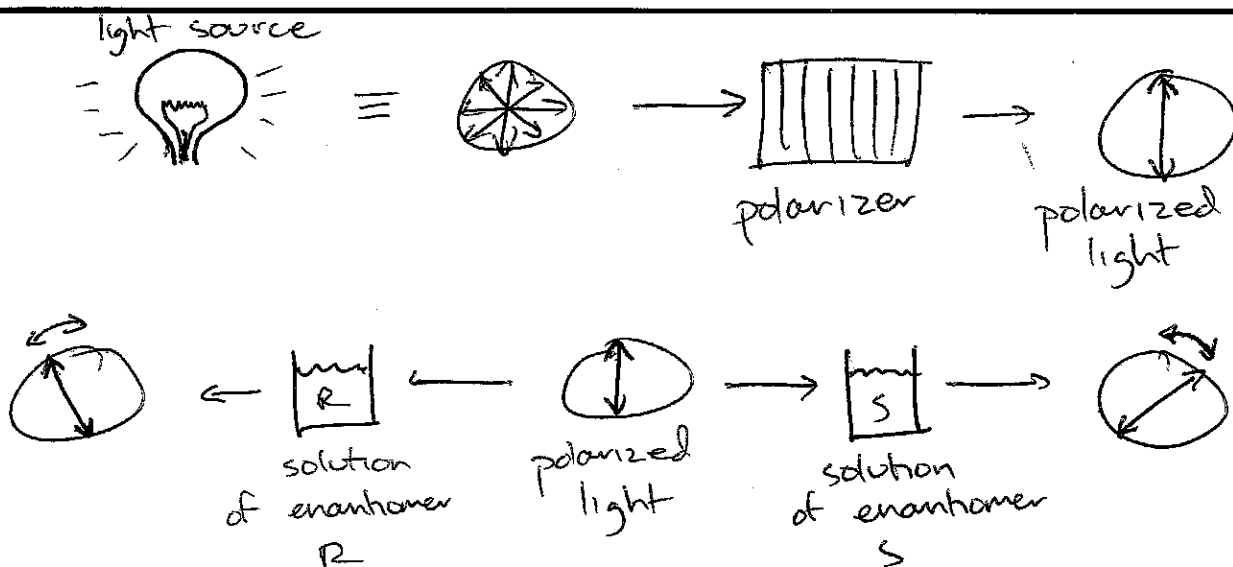 light source
polarizer
polarized
light
R
S
solution
of enantiomer
R
polarized
light
solution
of enantiomer
S